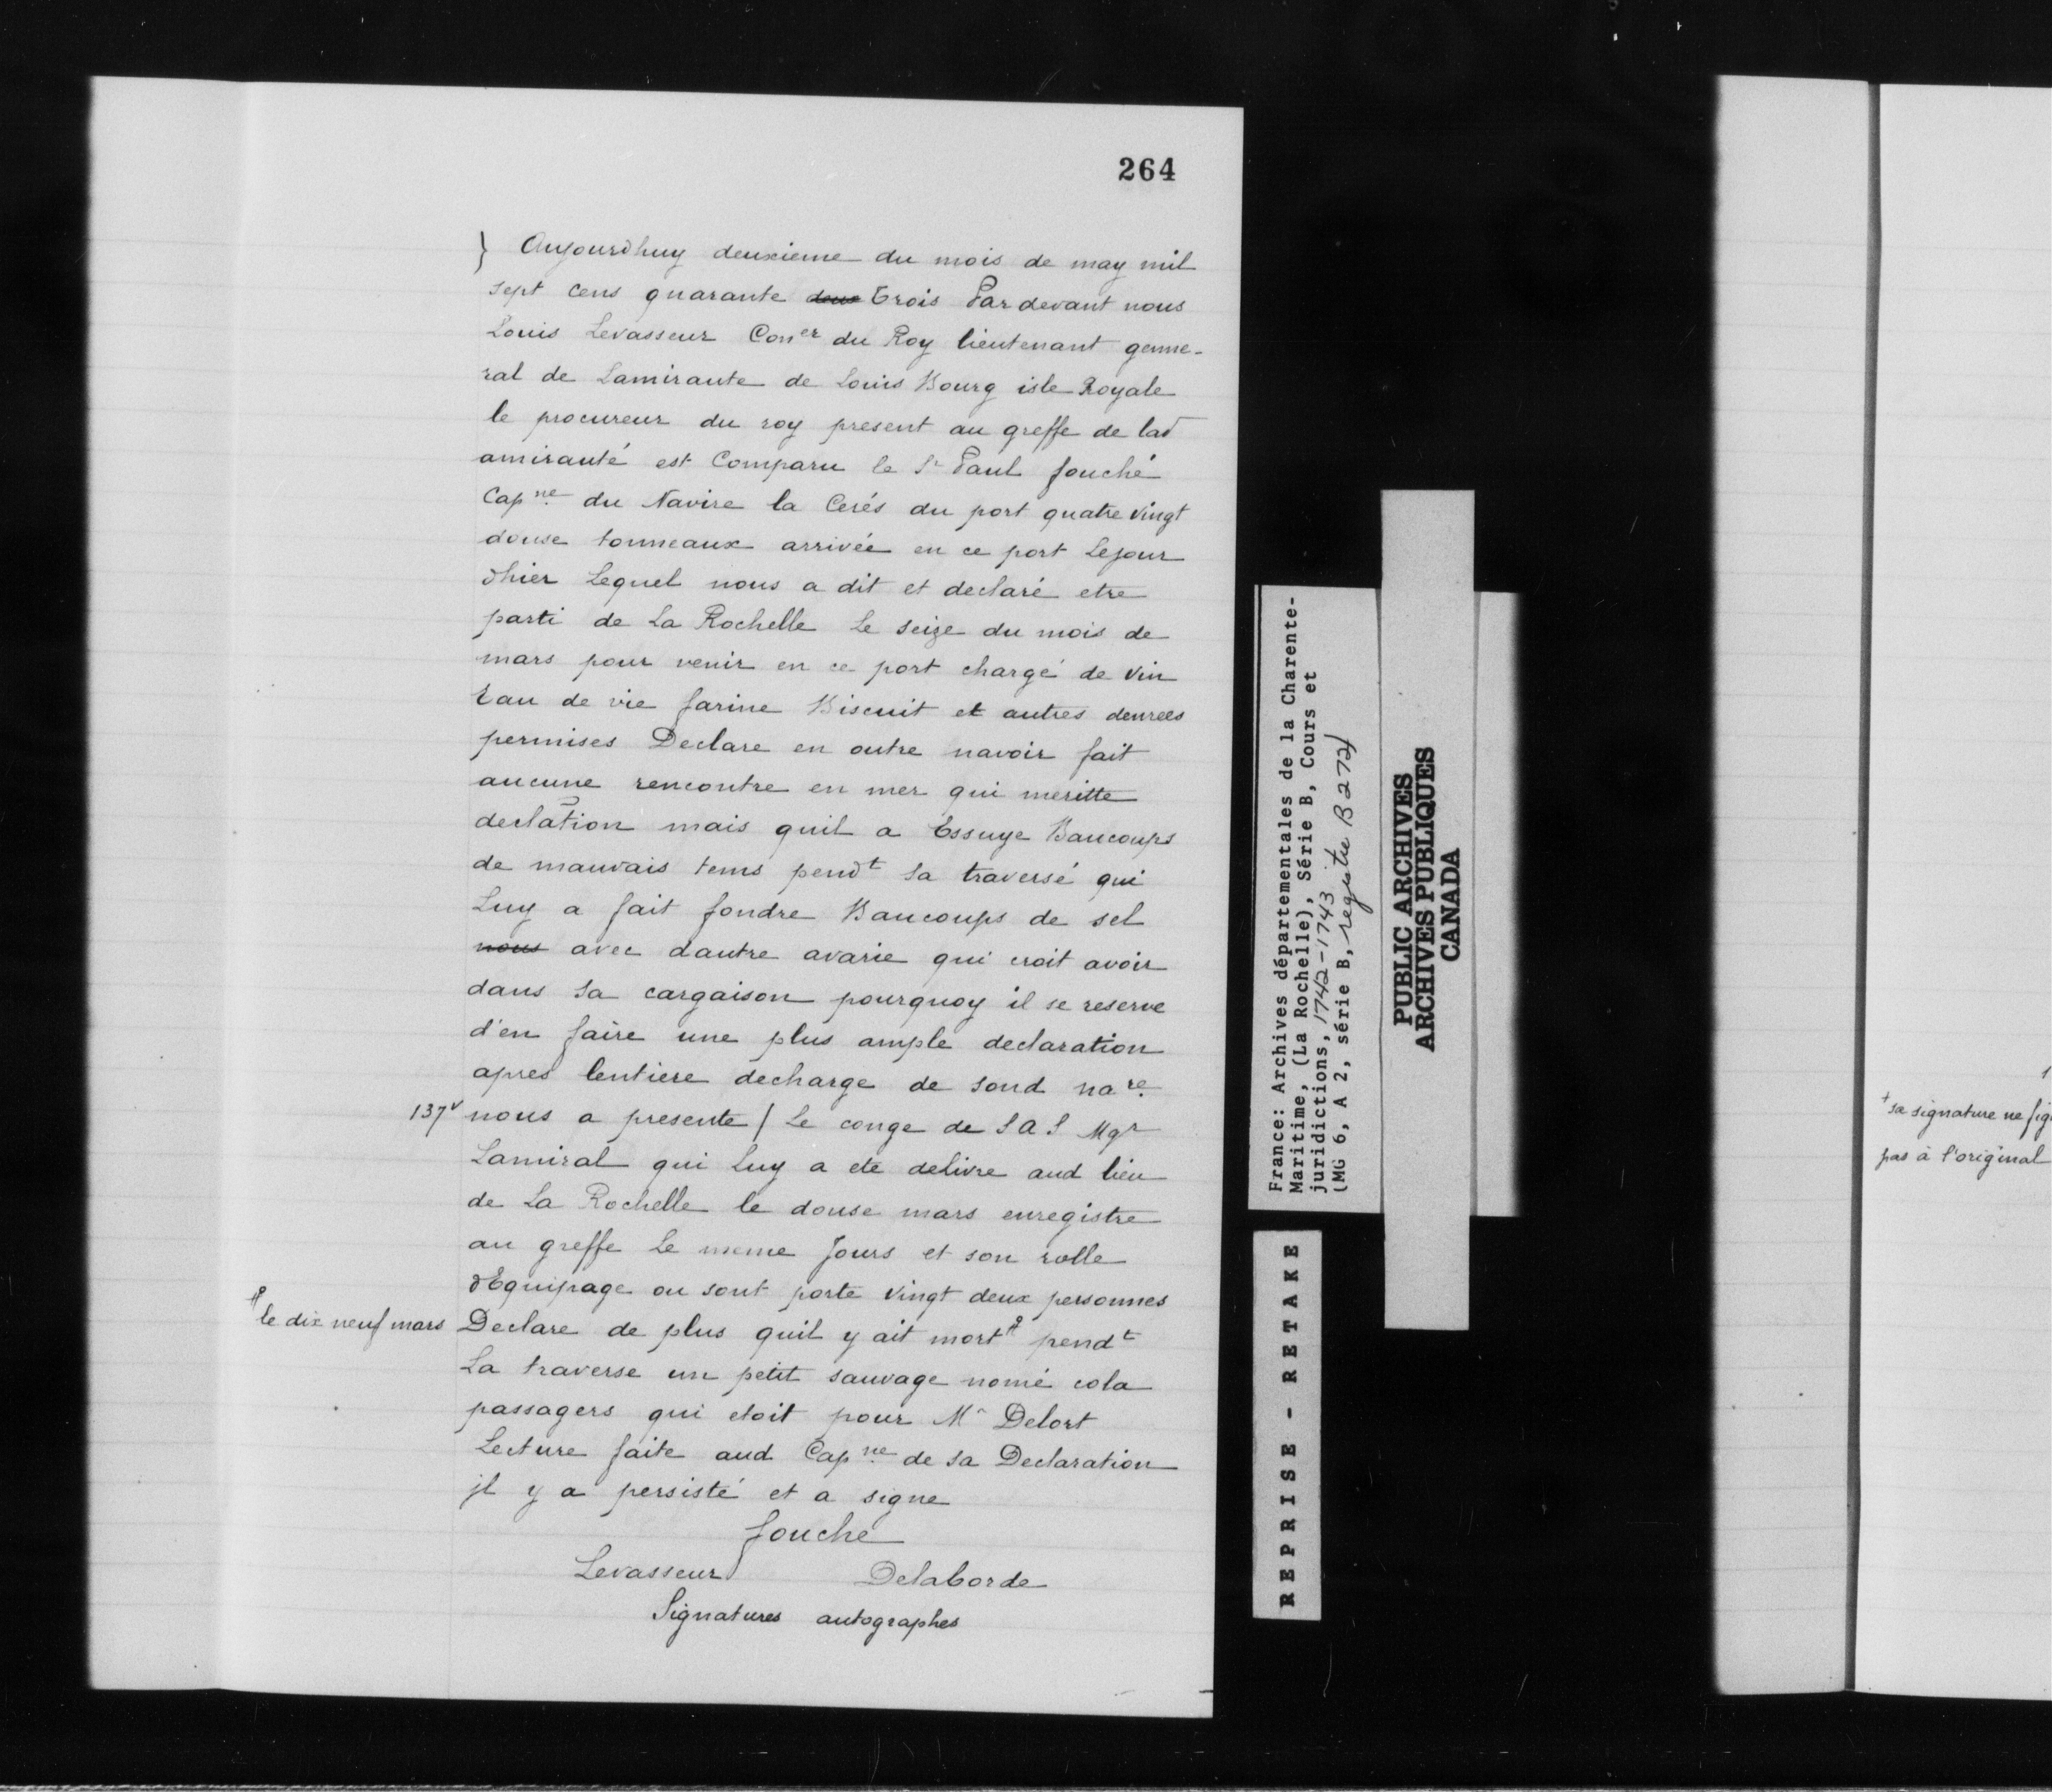 264
} Aujourdhuy deuxieme du mois de may mil
sept cens quarante deux trois Par devant nous
Louis Levasseur Con^er du Roy lieutenant genne-
ral de Lamiraute de Louis Bourg isle Royale
le procureur du roy present au greffe de lad
amirauté est Comparu le S^r Paul fouché
Cap^ne. du Navire la Cerés du port quatre vingt
douse tonneaux arrivée en ce port Lejour
dhier Lequel nous a dit et declaré etre
parti de La Rochelle Le seize du mois de
mars pour venir en ce port chargé de vin
Eau de vie farine Biscuit et autres denrees
permises Declare en outre navoir fait
aucune rencontre en mer qui meritte
declãtion mais quil a Essuye Baucoups
de mauvais tems pend^t sa traversé qui
Luy a fait fondre Baucoups de sel
nous avec dautre avarie qui croit avoir
dans sa cargaison pourquoy il se reserve
d'en faire une plus ample declaration
apres lentiere decharge de sond na^re.
137^v nous a presente / Le conge de S A S Mg^r
Lamiral qui luy a ete delivre aud lieu
de La Rochelle le douse mars enregistre
au greffe Le meme Jours et son rolle
dEquipage ou sont porte vingt deux personnes
# le dix neuf mars
Declare de plus quil y ait mort # pend^t
La traverse un petit sauvage nomé cola
passagers qui etoit pour M^r Delort
Lecture faite aud Cap^ne. de sa Declaration
jl y a persisté et a signe
fouche
Levasseur Delaborde
Signatures autographes
France: Archives départementales de la Charente-
Maritime, (La Rochelle), Série B, Cours et
juridictions, 1742-1743
(MG 6, A 2, série B, registre B 272)
PUBLIC ARCHIVES
ARCHIVES PUBLIQUES
CANADA
REPRISE - RETAKE
+ sa signature ne fig
pas à l'original